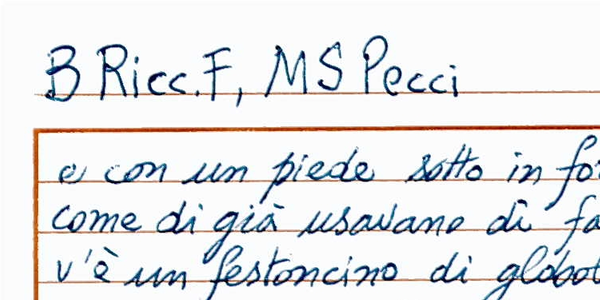 B Ricc. F, MS Pecci
e con un piede sotto in fo
come di già usavano di fa
v'è un festoncino di globot